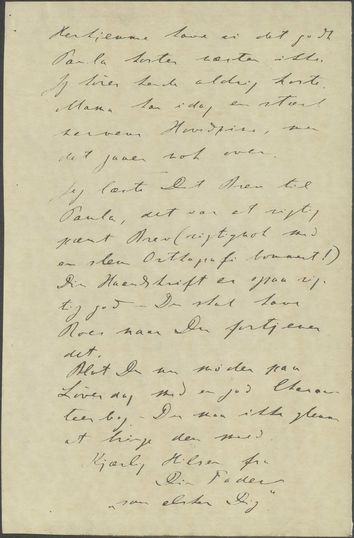 Herhjemme have vi det godt
Paula hoster næsten ikke
Jeg hører hende aldrig hoste.
Mama har idag en stærk
nervøs Hovedpine, men
det gaaer nok over.
Jeg læste Dit Brev til
Paula, det var et rigtig
pænt Brev (rigtignok med
en slem Orthografi bommert!)
Din Haandskrift er ogsaa rig-
tig god – Du skal have
Roes naar Du fortjener
det.
Blot Du nu møder paa
Løverdag med en god Charac-
teerbog. – Du maa ikke glemme
at bringe den med.
Kjærlig Hilsen fra
Din Fader
"som elsker Dig"